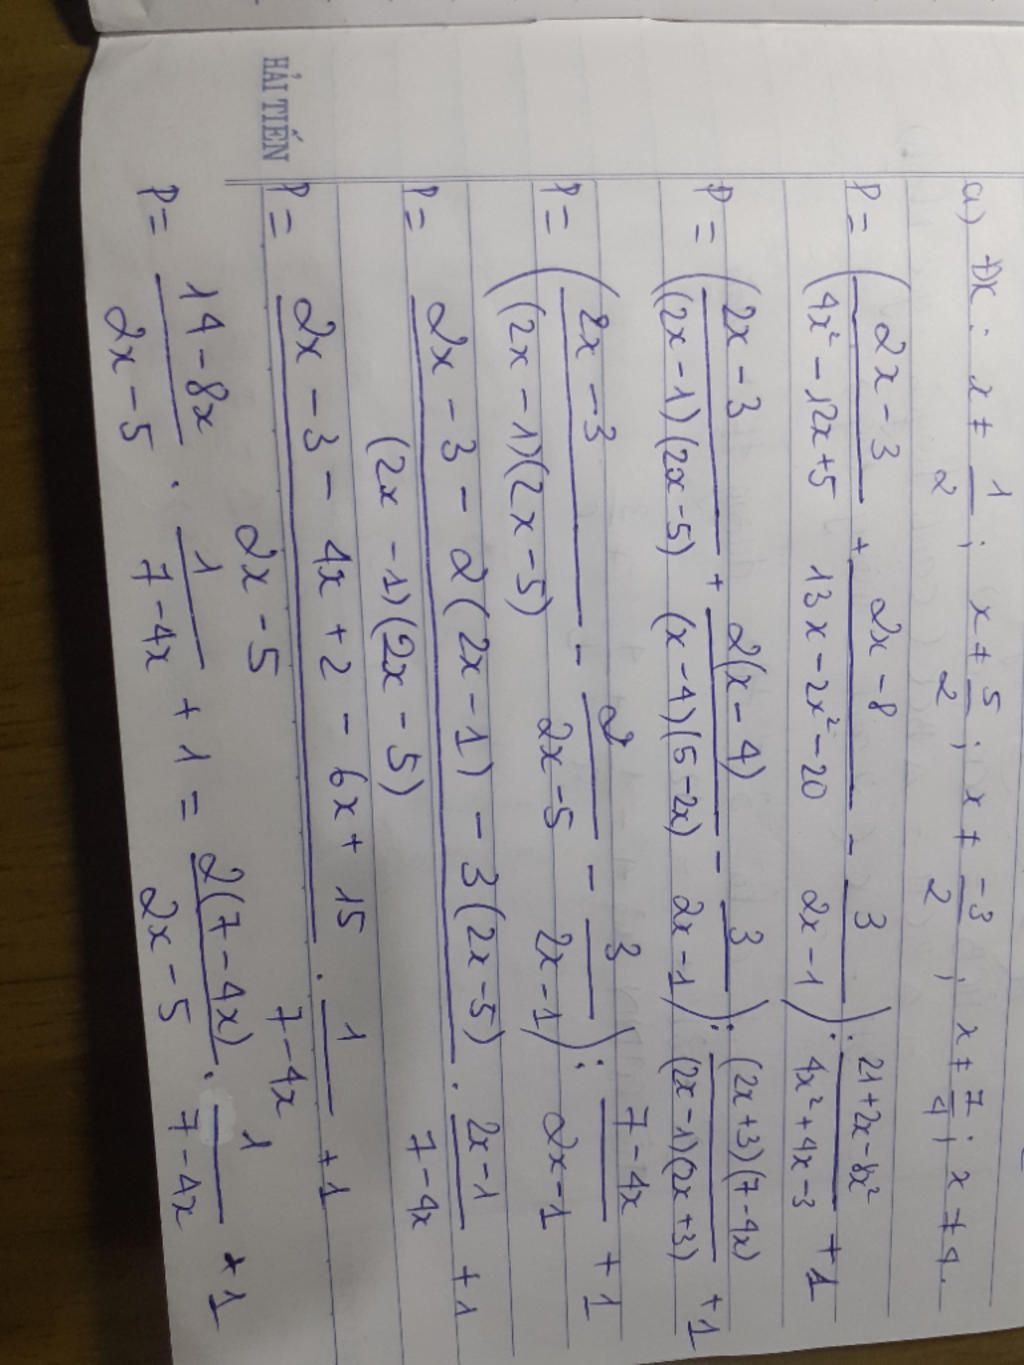 a) ĐK: x ≠ 1/2; x ≠ 5/2; x ≠ -3/2; x ≠ 7/4; x ≠ 4.
P = ( (2x-3)/(4x² - 12x + 5) + (2x-8)/(13x - 2x² - 20) - 3/(2x-1) ) : (21+2x-8x²)/(4x²+4x-3) + 1
P = ( (2x-3)/((2x-1)(2x-5)) + 2(x-4)/((x-4)(5-2x)) - 3/(2x-1) ) : ((2x+3)(7-4x))/((2x-1)(2x+3)) + 1
P = ( (2x-3)/((2x-1)(2x-5)) - 2/(2x-5) - 3/(2x-1) ) : (7-4x)/(2x-1) + 1
P = (2x-3-2(2x-1)-3(2x-5))/((2x-1)(2x-5)) . (2x-1)/(7-4x) + 1
P = (2x-3-4x+2-6x+15)/(2x-5) . 1/(7-4x) + 1
P = (14-8x)/(2x-5) . 1/(7-4x) + 1 = 2(7-4x)/(2x-5) . 1/(7-4x) + 1
HẢI TIẾN